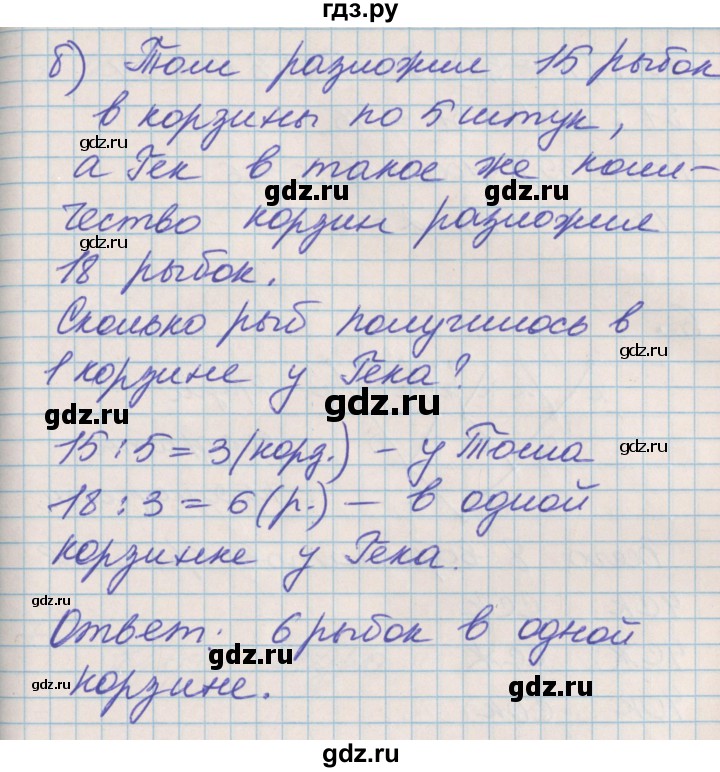 гдз.ру
б) Том разложил 15 рыбок
в корзины по 5 штук,
gdz.ru
а Гек в такое же коли-
gdz.ru
gdz.ru
чество корзин разложил
gdz.ru
18 рыбок.
Сколько рыб получилось в
gdz.ru
1 корзине у Гека?
gdz.ru
gdz.ru
15 : 5 = 3 (корз.) - у Тома
gdz.ru
18 : 3 = 6 (р.) - в одной
корзинке у Гека.
gdz.ru
Ответ: 6 рыбок в одной
gdz.ru
gdz.ru
корзине.
gdz.ru
gdz.ru